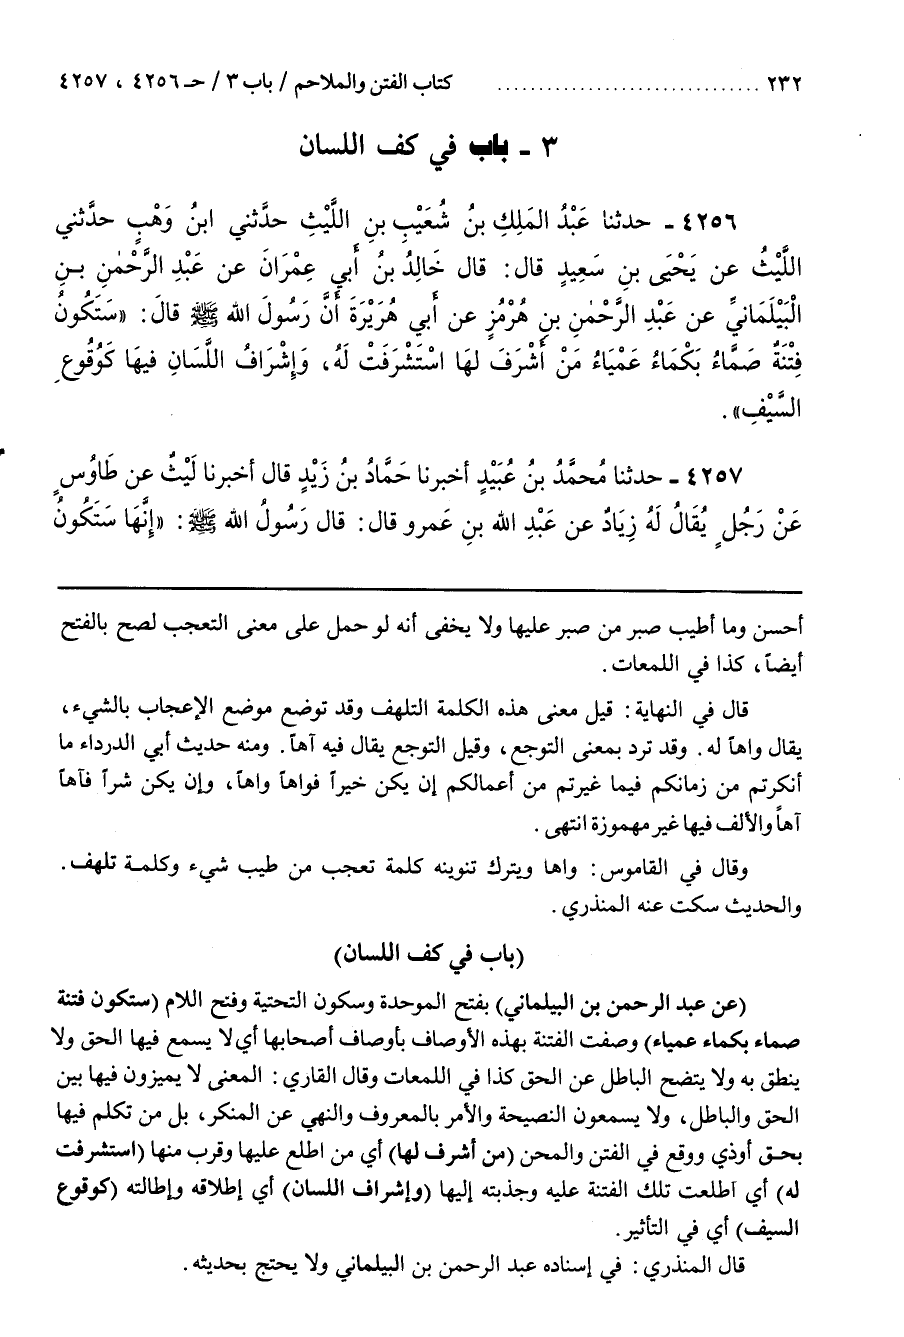 ٢٣٢ .............................. كتاب الفتن والملاحم / باب ٣ / حـ ٤٢٥٦ ، ٤٢٥٧
٣ ـ باب في كف اللسان
٤٢٥٦ ـ حدثنا عَبْدُ المَلِكِ بنُ شُعَيْبِ بنِ اللَّيْثِ حدَّثني ابنُ وَهْبٍ حدَّثني
اللَّيْثُ عن يَحْيَى بنِ سَعِيدٍ قال: قال خَالِدُ بنُ أَبي عِمْرَانَ عن عَبْدِ الرَّحْمٰنِ بـنِ
الْبَيْلَمَانيِّ عن عَبْدِ الرَّحْمٰنِ بنِ هُرْمُزٍ عن أَبي هُرَيْرَةَ أَنَّ رَسُولَ الله ﷺ قالَ: «سَتَكُونُ
فِتْنَةٌ صَمَّاءُ بَكْمَاءُ عَمْيَاءُ مَنْ أَشْرَفَ لهَا اسْتَشْرَفَتْ لَهُ، وَإِشْرَافُ اللِّسَانِ فيهَا كَوُقُوعِ
السَّيْفِ».
٤٢٥٧ ـ حدثنا مُحمَّدُ بنُ عُبَيْدٍ أخبرنا حَمَّادُ بنُ زَيْدٍ قال أخبرنا لَيْثٌ عن طَاوُسٍ
عَنْ رَجُلٍ يُقَالُ لَهُ زِيَادٌ عن عَبْدِ الله بنِ عَمرو قال: قال رَسُولُ الله ﷺ: «إِنَّهَا سَتَكُونُ
أحسن وما أطيب صبر من صبر عليها ولا يخفى أنه لو حمل على معنى التعجب لصح بالفتح
أيضاً، كذا في اللمعات.
قال في النهاية: قيل معنى هذه الكلمة التلهف وقد توضع موضع الإعجاب بالشيء،
يقال واهاً له. وقد ترد بمعنى التوجع، وقيل التوجع يقال فيه آهاً. ومنه حديث أبي الدرداء ما
أنكرتم من زمانكم فيما غيرتم من أعمالكم إن يكن خيراً فواهاً واهاً، وإن يكن شراً فآهاً
آهاً والألف فيها غير مهموزة انتهى.
وقال في القاموس: واها ويترك تنوينه كلمة تعجب من طيب شيء وكلمـة تلهف.
والحديث سكت عنه المنذري.
(باب في كف اللسان)
(عن عبد الرحمن بن البيلماني) بفتح الموحدة وسكون التحتية وفتح اللام (ستكون فتنة
صماء بكماء عمياء) وصفت الفتنة بهذه الأوصاف بأوصاف أصحابها أي لا يسمع فيها الحق ولا
ينطق به ولا يتضح الباطل عن الحق كذا في اللمعات وقال القاري: المعنى لا يميزون فيها بين
الحق والباطل، ولا يسمعون النصيحة والأمر بالمعروف والنهي عن المنكر، بل من تكلم فيها
بحـق أوذي ووقع في الفتن والمحن (من أشرف لها) أي من اطلع عليها وقرب منها (استشرفت
له) أي اطلعت تلك الفتنة عليه وجذبته إليها (وإشراف اللسان) أي إطلاقه وإطالته (كوقوع
السيف) أي في التأثير.
قال المنذري: في إسناده عبد الرحمن بن البيلماني ولا يحتج بحديثه.